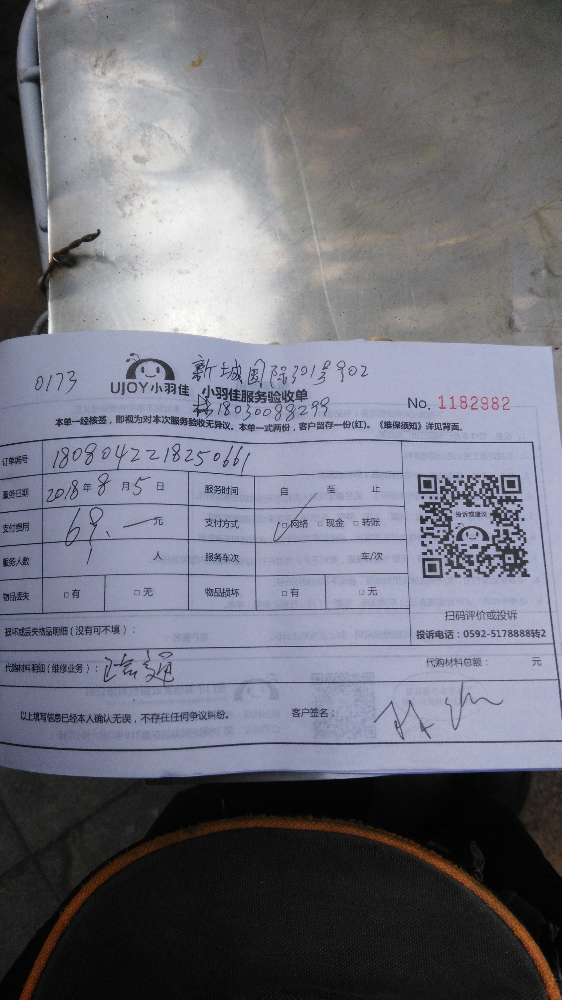 0173
新城国际301号902
UJOY小羽佳
小羽佳服务验收单
林18030088299
No. 1182982
本单一经核签,即视为对本次服务验收无异议。本单一式两份,客户留存一份(红)。《维保须知》详见背面。
订单编号 1808042218250661
服务日期 2018年8月5日 服务时间 自 至 止
支付费用 69.一元 支付方式 □网络 □现金 □转账
服务人数 1 人 服务车次 车/次
物品丢失 □有 □无 物品损坏 □有 □无
投诉或建议
扫码评价或投诉
投诉电话:0592-5178888转2
损坏或丢失物品明细(没有可不填):
代购材料明细(维修业务): 代购材料总额: 元
以上填写信息已经本人确认无误,不存在任何争议纠纷。 客户签名: